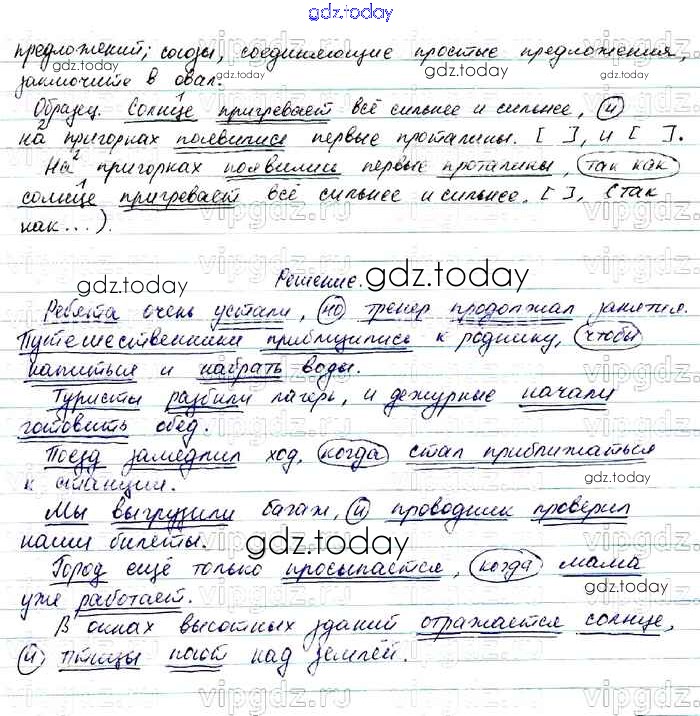 gdz.today
предложений; союзы, соединяющие простые предложения,
заключите в овал.
Образец. Солнце пригревает всё сильнее и сильнее, и
на пригорках появились первые проталины. [ ], и [ ].
На пригорках появились первые проталины, так как
солнце пригревает всё сильнее и сильнее. [ ], (так
как...).
Решение. gdz.today
Ребята очень устали, но тренер продолжал занятия.
Путешественники приблизились к роднику, чтобы
напиться и набрать воды.
Туристы разбили лагерь, и дежурные начали
готовить обед.
Поезд замедлил ход, когда стал приближаться
к станции.
Мы выгрузили багаж, и проводник проверил
наши билеты.
gdz.today
Город ещё только просыпается, когда мама
уже работает.
В окнах высотных зданий отражается солнце,
и птицы поют над землёй.
vipgdz.ru